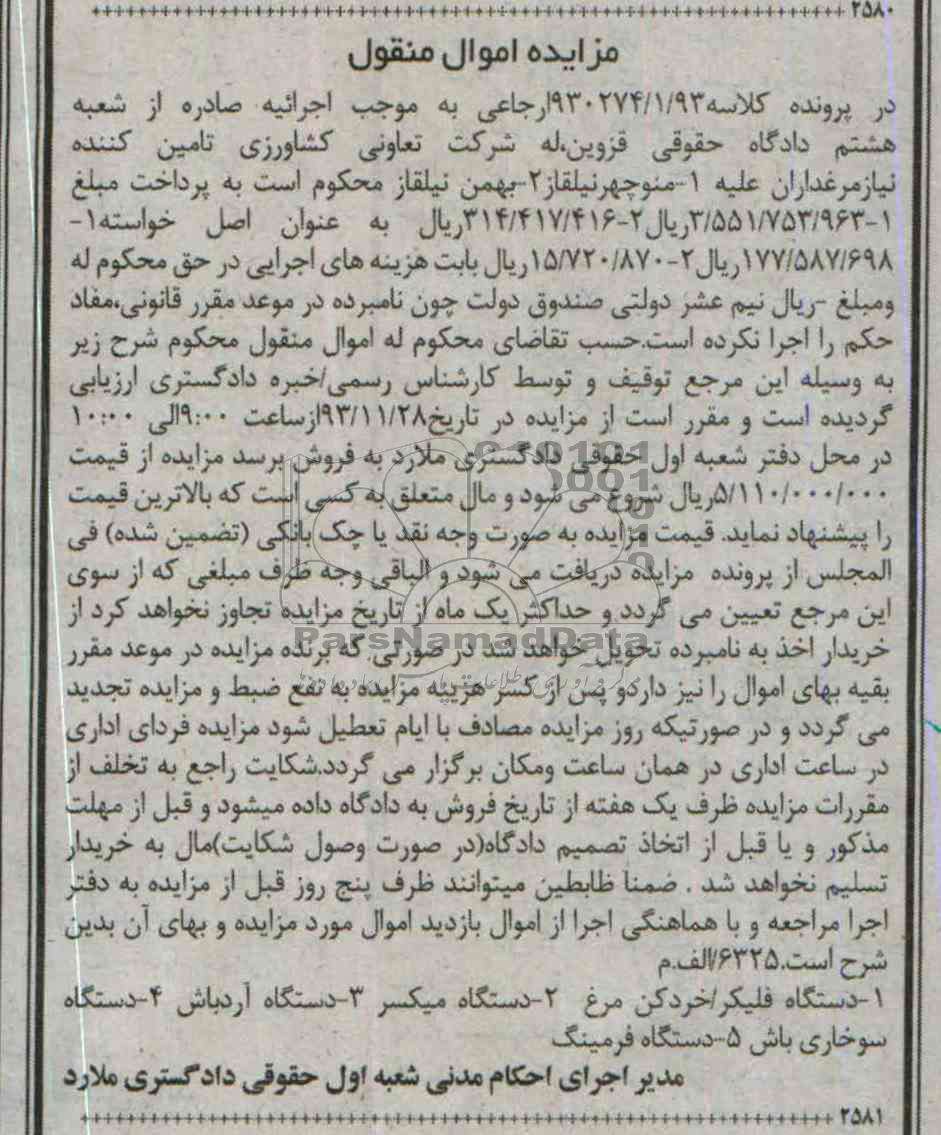 ۲۵۸۰
مزایده اموال منقول
در پرونده کلاسه۹۳۰۲۷۴/۱/۹۳ارجاعی به موجب اجرائیه صادره از شعبه
هشتم دادگاه حقوقی قزوین،له شرکت تعاونی کشاورزی تامین کننده
نیازمرغداران علیه ۱-منوچهرنیلقاز۲-بهمن نیلقاز محکوم است به پرداخت مبلغ
۱-۳/۵۵۱/۷۵۳/۹۶۳ریال۲-۳۱۴/۴۱۷/۴۱۶ریال به عنوان اصل خواسته۱-
۱۷۷/۵۸۷/۶۹۸ریال۲-۱۵/۷۲۰/۸۷۰ریال بابت هزینه های اجرایی در حق محکوم له
ومبلغ -ریال نیم عشر دولتی صندوق دولت چون نامبرده در موعد مقرر قانونی،مفاد
حکم را اجرا نکرده است.حسب تقاضای محکوم له اموال منقول محکوم شرح زیر
به وسیله این مرجع توقیف و توسط کارشناس رسمی/خبره دادگستری ارزیابی
گردیده است و مقرر است از مزایده در تاریخ۹۳/۱۱/۲۸ازساعت ۹:۰۰الی ۱۰:۰۰
در محل دفتر شعبه اول حقوقی دادگستری ملارد به فروش برسد مزایده از قیمت
۵/۱۱۰/۰۰۰/۰۰۰ریال شروع می شود و مال متعلق به کسی است که بالاترین قیمت
را پیشنهاد نماید. قیمت مزایده به صورت وجه نقد یا چک بانکی (تضمین شده) فی
المجلس از پرونده مزایده دریافت می شود و الباقی وجه ظرف مبلغی که از سوی
این مرجع تعیین می گردد و حداکثر یک ماه از تاریخ مزایده تجاوز نخواهد کرد از
خریدار اخذ به نامبرده تحویل خواهد شد در صورتی که برنده مزایده در موعد مقرر
بقیه بهای اموال را نیز داردو پس از کسر هزینه مزایده به نفع ضبط و مزایده تجدید
می گردد و در صورتیکه روز مزایده مصادف با ایام تعطیل شود مزایده فردای اداری
در ساعت اداری در همان ساعت ومکان برگزار می گردد.شکایت راجع به تخلف از
مقررات مزایده ظرف یک هفته از تاریخ فروش به دادگاه داده میشود و قبل از مهلت
مذکور و یا قبل از اتخاذ تصمیم دادگاه(در صورت وصول شکایت)مال به خریدار
تسلیم نخواهد شد . ضمنا ظابطین میتوانند ظرف پنج روز قبل از مزایده به دفتر
اجرا مراجعه و با هماهنگی اجرا از اموال بازدید اموال مورد مزایده و بهای آن بدین
شرح است.۶۳۲۵/الف.م
۱-دستگاه فلیکر/خردکن مرغ ۲-دستگاه میکسر ۳-دستگاه آردباش ۴-دستگاه
سوخاری باش ۵-دستگاه فرمینگ
مدیر اجرای احکام مدنی شعبه اول حقوقی دادگستری ملارد
۲۵۸۱
ParsNamadData